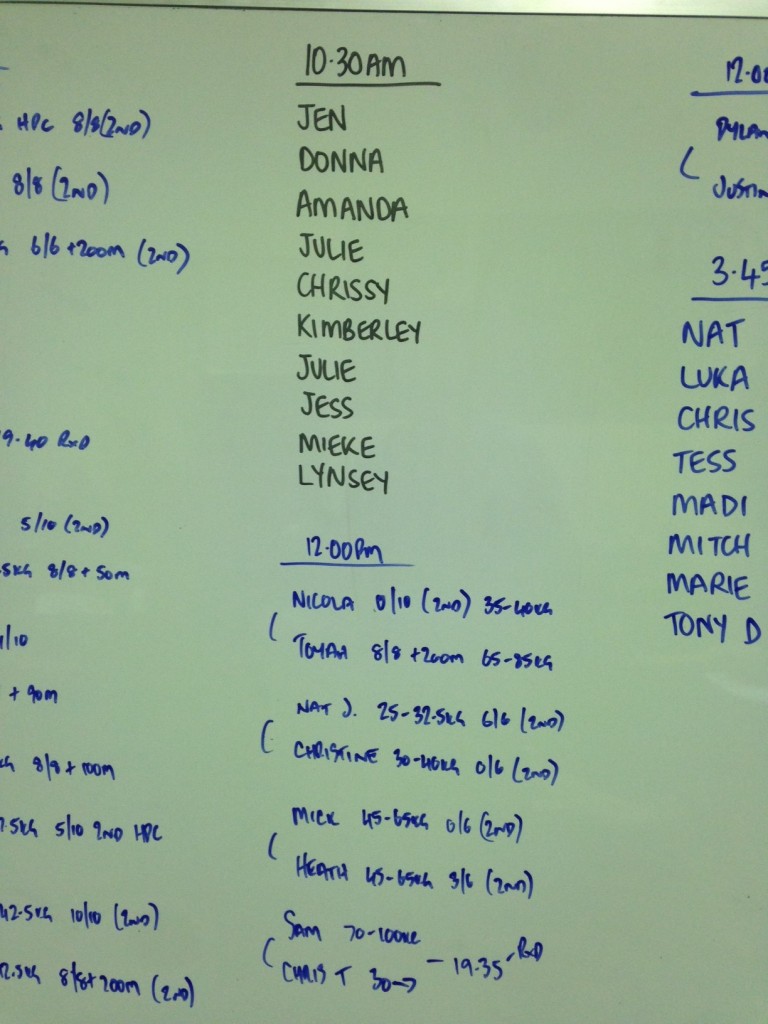 HPC 8/8(2ND)
8/8 (2ND)
6/6 +200m (2ND)
9.40 RxD
5/10 (2ND)
5KG 8/8 + 50m
/10
+ 90m
8/8 + 100m
.5KG 5/10 2ND HPC
42.5KG 10/10 (2ND)
2.5KG 8/8+200m (2ND)
10.30AM
JEN
DONNA
AMANDA
JULIE
CHRISSY
KIMBERLEY
JULIE
JESS
MIEKE
LYNSEY
12.00PM
NICOLA 0/10 (2ND) 35-40KG
TOYAH 8/8 +200m 65-85KG
NAT J. 25-32.5KG 6/6 (2ND)
CHRISTINE 30-40KG 0/6 (2ND)
MICK 45-65KG 0/6 (2ND)
HEATH 45-65KG 3/6 (2ND)
SAM 70-100KG
CHRIS T 30→ - 19.35 RxD
12.00
DYLAN
JUSTIN
3.45
NAT
LUKA
CHRIS
TESS
MADI
MITCH
MARIE
TONY D